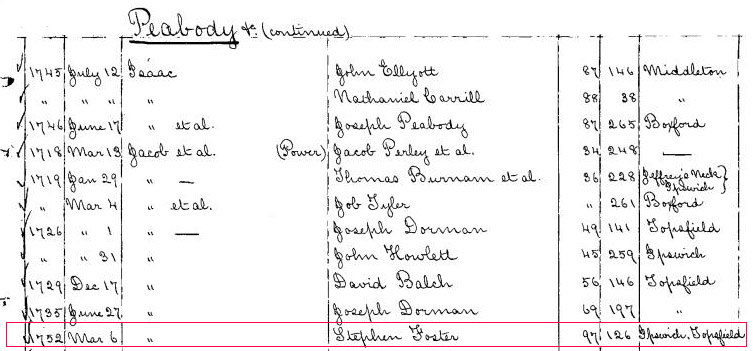 Peabody &c (continued)
1745 July 12 Isaac John Ellyott 87 146 Middleton
" " " Nathaniel Carrill 88 38 "
1746 June 17 " et al. Joseph Peabody 87 265 Boxford
1718 Mar 13 Jacob et al. (Power) Jacob Perley et al. 34 248 —
1719 Jan 29 " — Thomas Burnam et al. 36 228 Jeffreje Neck Ipswich }
" Mar 4 " et al. Job Tyler " 261 Boxford
1726 " 1 " — Joseph Dorman 49 141 Topsfield
" " 31 " John Howlett 45 259 Ipswich
1729 Dec 17 " David Balch 56 146 Topsfield
1735 June 27 " Joseph Dorman 69 197 "
1752 Mar 6 " Stephen Foster 97 126 Ipswich, Topsfield